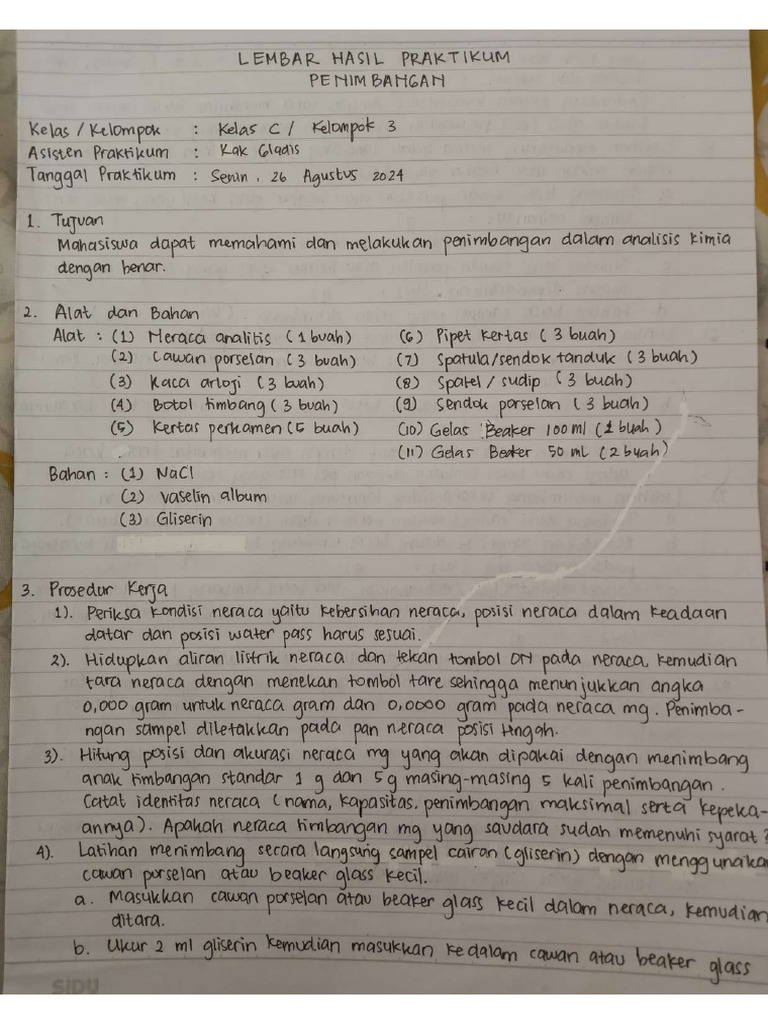 LEMBAR HASIL PRAKTIKUM
PENIMBANGAN
Kelas / Kelompok : Kelas C / Kelompok 3
Asisten Praktikum : Kak Gladis
Tanggal Praktikum : Senin, 26 Agustus 2024
1. Tujuan
Mahasiswa dapat memahami dan melakukan penimbangan dalam analisis kimia
dengan benar.
2. Alat dan Bahan
Alat : (1) Neraca analitis (1 buah) (6) Pipet kertas (3 buah)
(2) Cawan porselan (3 buah) (7) Spatula/sendok tanduk (3 buah)
(3) Kaca arloji (3 buah) (8) Spatel / sudip (3 buah)
(4) Botol timbang (3 buah) (9) Sendok porselan (3 buah)
(5) Kertas perkamen (5 buah) (10) Gelas Beaker 100 ml (1 buah)
(11) Gelas Beaker 50 mL (2 buah)
Bahan : (1) NaCl
(2) Vaselin album
(3) Gliserin
3. Prosedur Kerja
1). Periksa kondisi neraca yaitu kebersihan neraca, posisi neraca dalam keadaan
datar dan posisi water pass harus sesuai.
2). Hidupkan aliran listrik neraca dan tekan tombol ON pada neraca, kemudian
tara neraca dengan menekan tombol tare sehingga menunjukkan angka
0,000 gram untuk neraca gram dan 0,0000 gram pada neraca mg. Penimba-
ngan sampel diletakkan pada pan neraca posisi tengah.
3). Hitung posisi dan akurasi neraca mg yang akan dipakai dengan menimbang
anak timbangan standar 1 g dan 5g masing-masing 5 kali penimbangan.
Catat identitas neraca (nama, kapasitas, penimbangan maksimal serta kepeka-
annya). Apakah neraca timbangan mg yang saudara sudah memenuhi syarat?
4). Latihan menimbang secara langsung sampel cairan (gliserin) dengan menggunakan
cawan porselan atau beaker glass kecil.
a. Masukkan cawan porselan atau beaker glass kecil dalam neraca, kemudian
ditara.
b. Ukur 2 ml gliserin kemudian masukkan kedalam cawan atau beaker glass
SIDU